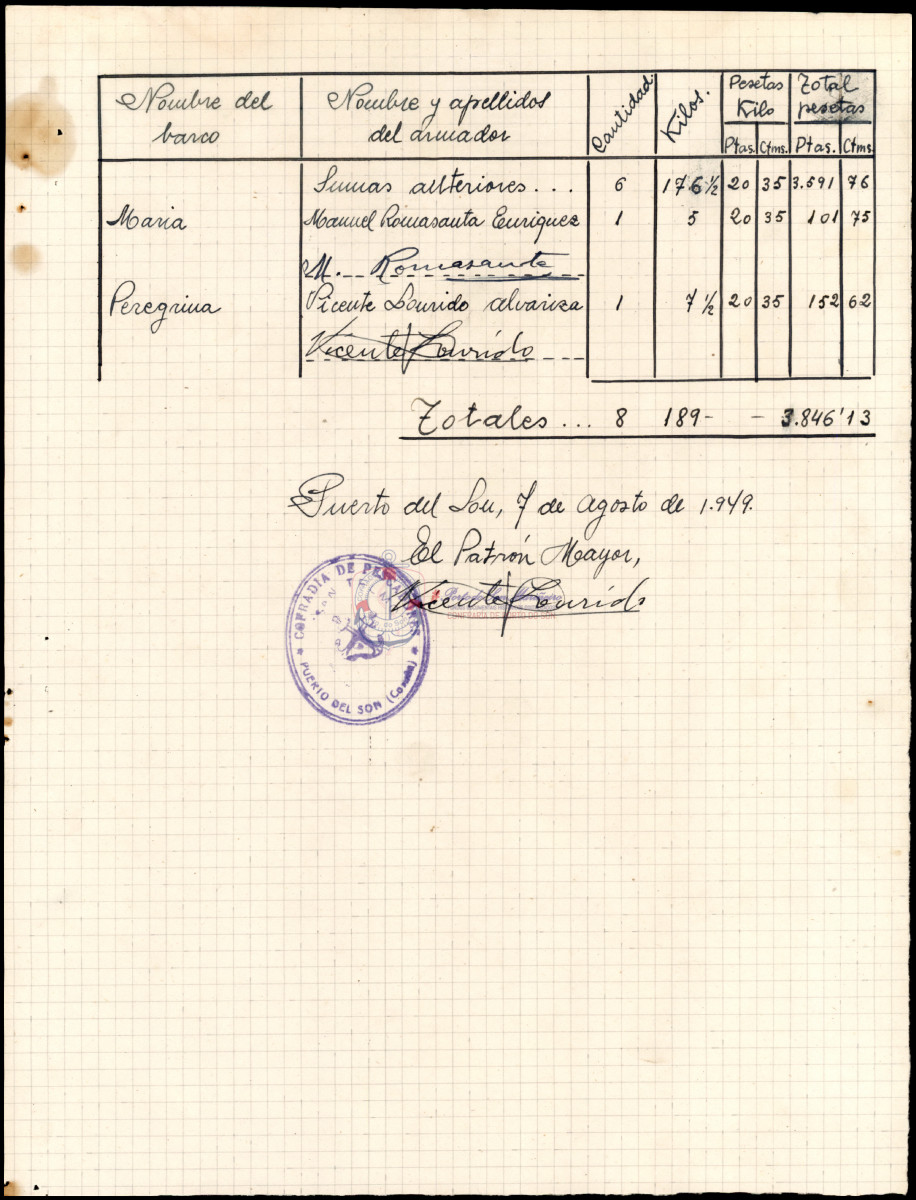 Nombre del barco | Nombre y apellidos del armador | Cantidad. | Kilos. | Pesetas Kilo Ptas. Ctms. | Total pesetas Ptas. Ctms.
Sumas anteriores... 6 176 ½ 20 35 3.591 76
Maria Manuel Romasanta Enriquez 1 5 20 35 101 75
M. Romasanta
Peregrina Vicente Lourido Alvariza 1 7 ½ 20 35 152 62
Vicente Lourido
Totales... 8 189- - 3.846'13
Puerto del Son, 7 de agosto de 1.949.
El Patrón Mayor,
Vicente Lourido
COFRADIA DE PESCADORES
PUERTO DEL SON (Coruña)